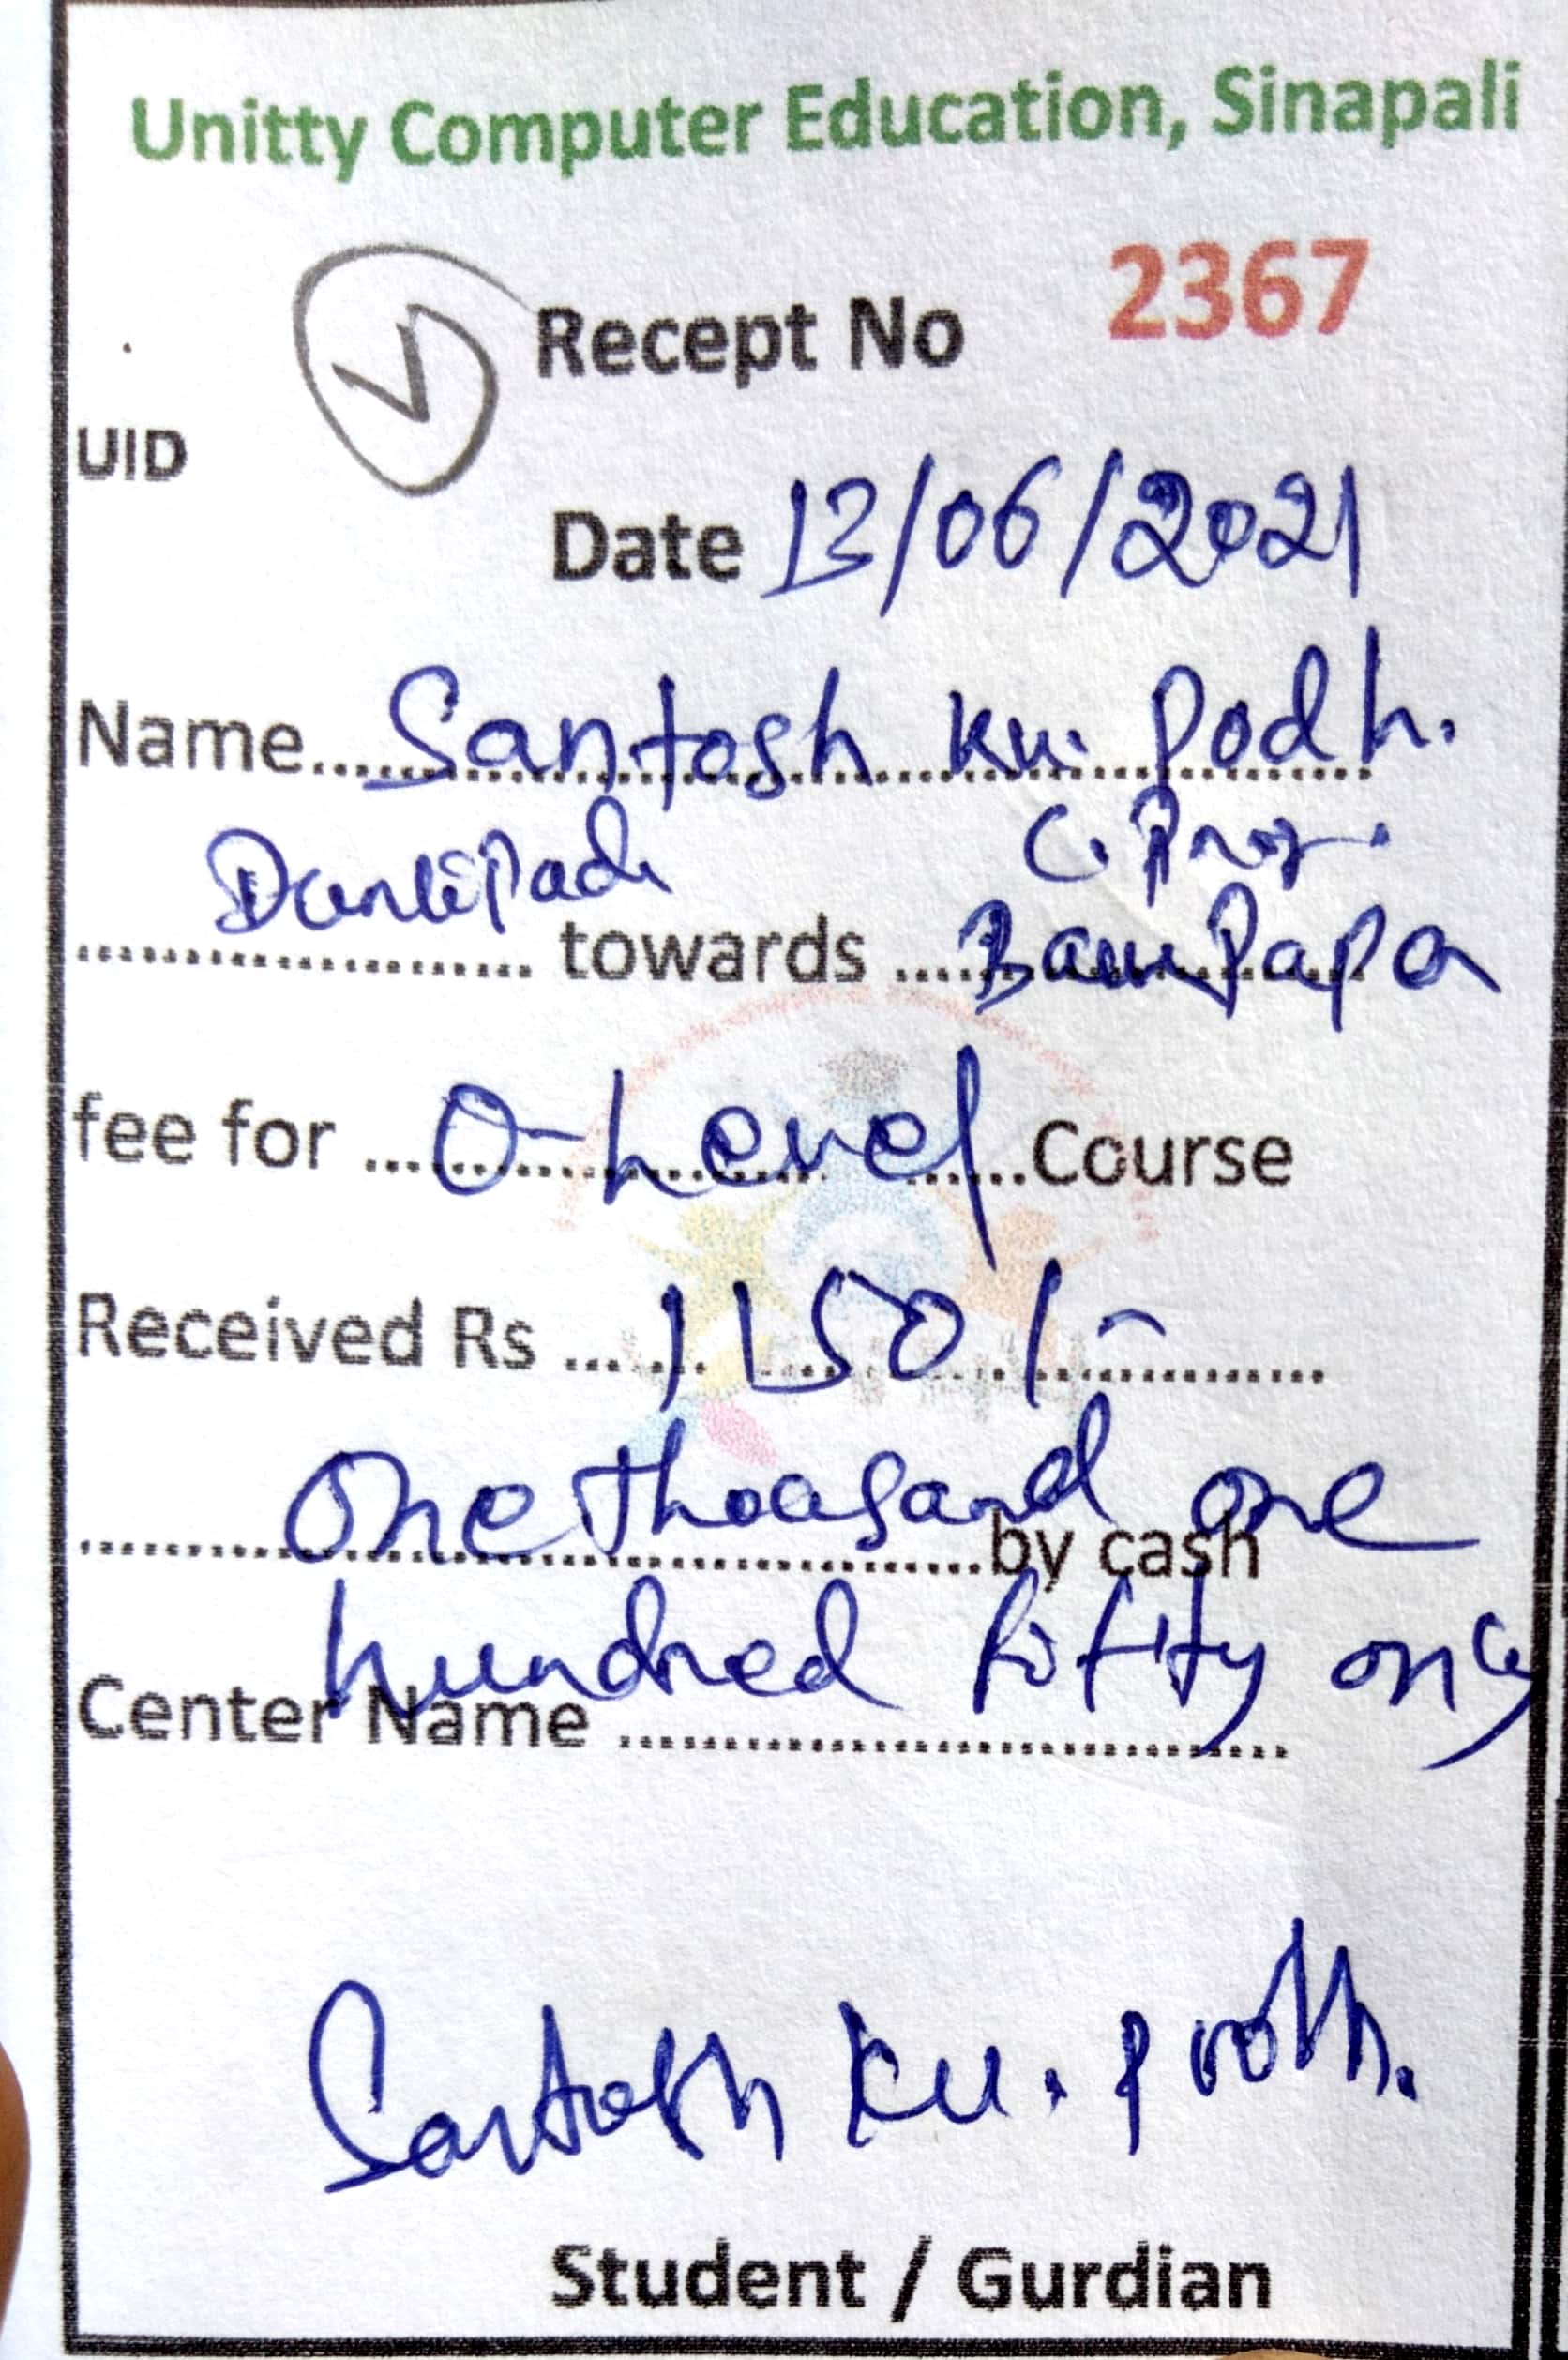 Unitty Computer Education, Sinapali
Recept No 2367
UID
Date 13/06/2021
Name Santosh Ku. Podh.
C. Prog.
towards
fee for O-Level Course
Received Rs 1150/-
One thoasand one
by cash
hundred fifty only
Center Name
Santosh Ku.
Student / Gurdian